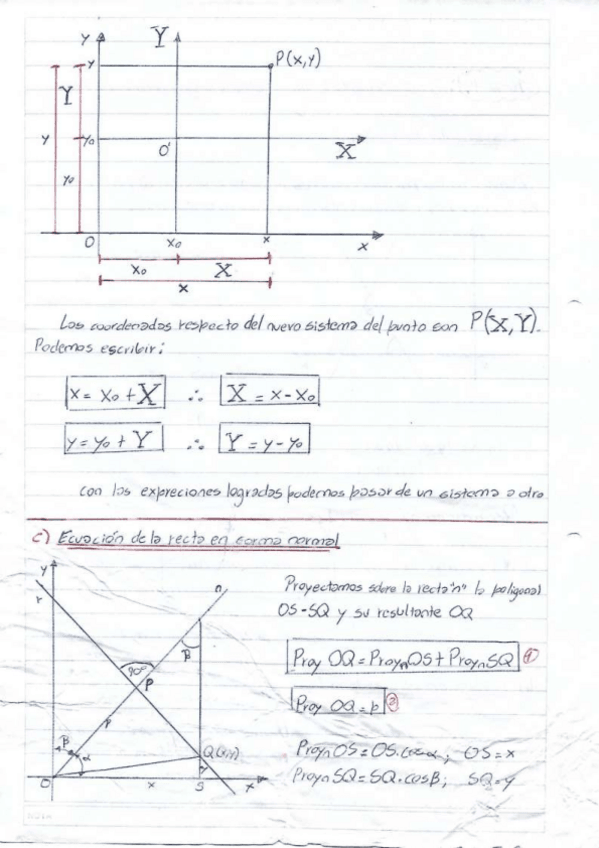 y Y
y P(x,y)
Y
y y₀
O' X
y₀
O x₀ x x
x₀ X
x
Las coordenadas respecto del nuevo sistema del punto son P(X,Y).
Podemos escribir:
x = x₀ + X ∴ X = x - x₀
y = y₀ + Y ∴ Y = y - y₀
con las expreciones logradas podemos pasar de un sistema a otro
c) Ecuación de la recta en forma normal
y
r n
Proyectamos sobre la recta "n" la poligonal
OS-SQ y su resultante OQ
β
90°
P
Proy OQ = ProynOS + ProynSQ 1
p
Proy OQ = p 2
β α Q(x,y)
ProynOS = OS.cos α; OS = x
ProynSQ = SQ.cosβ; SQ = y
O x S x